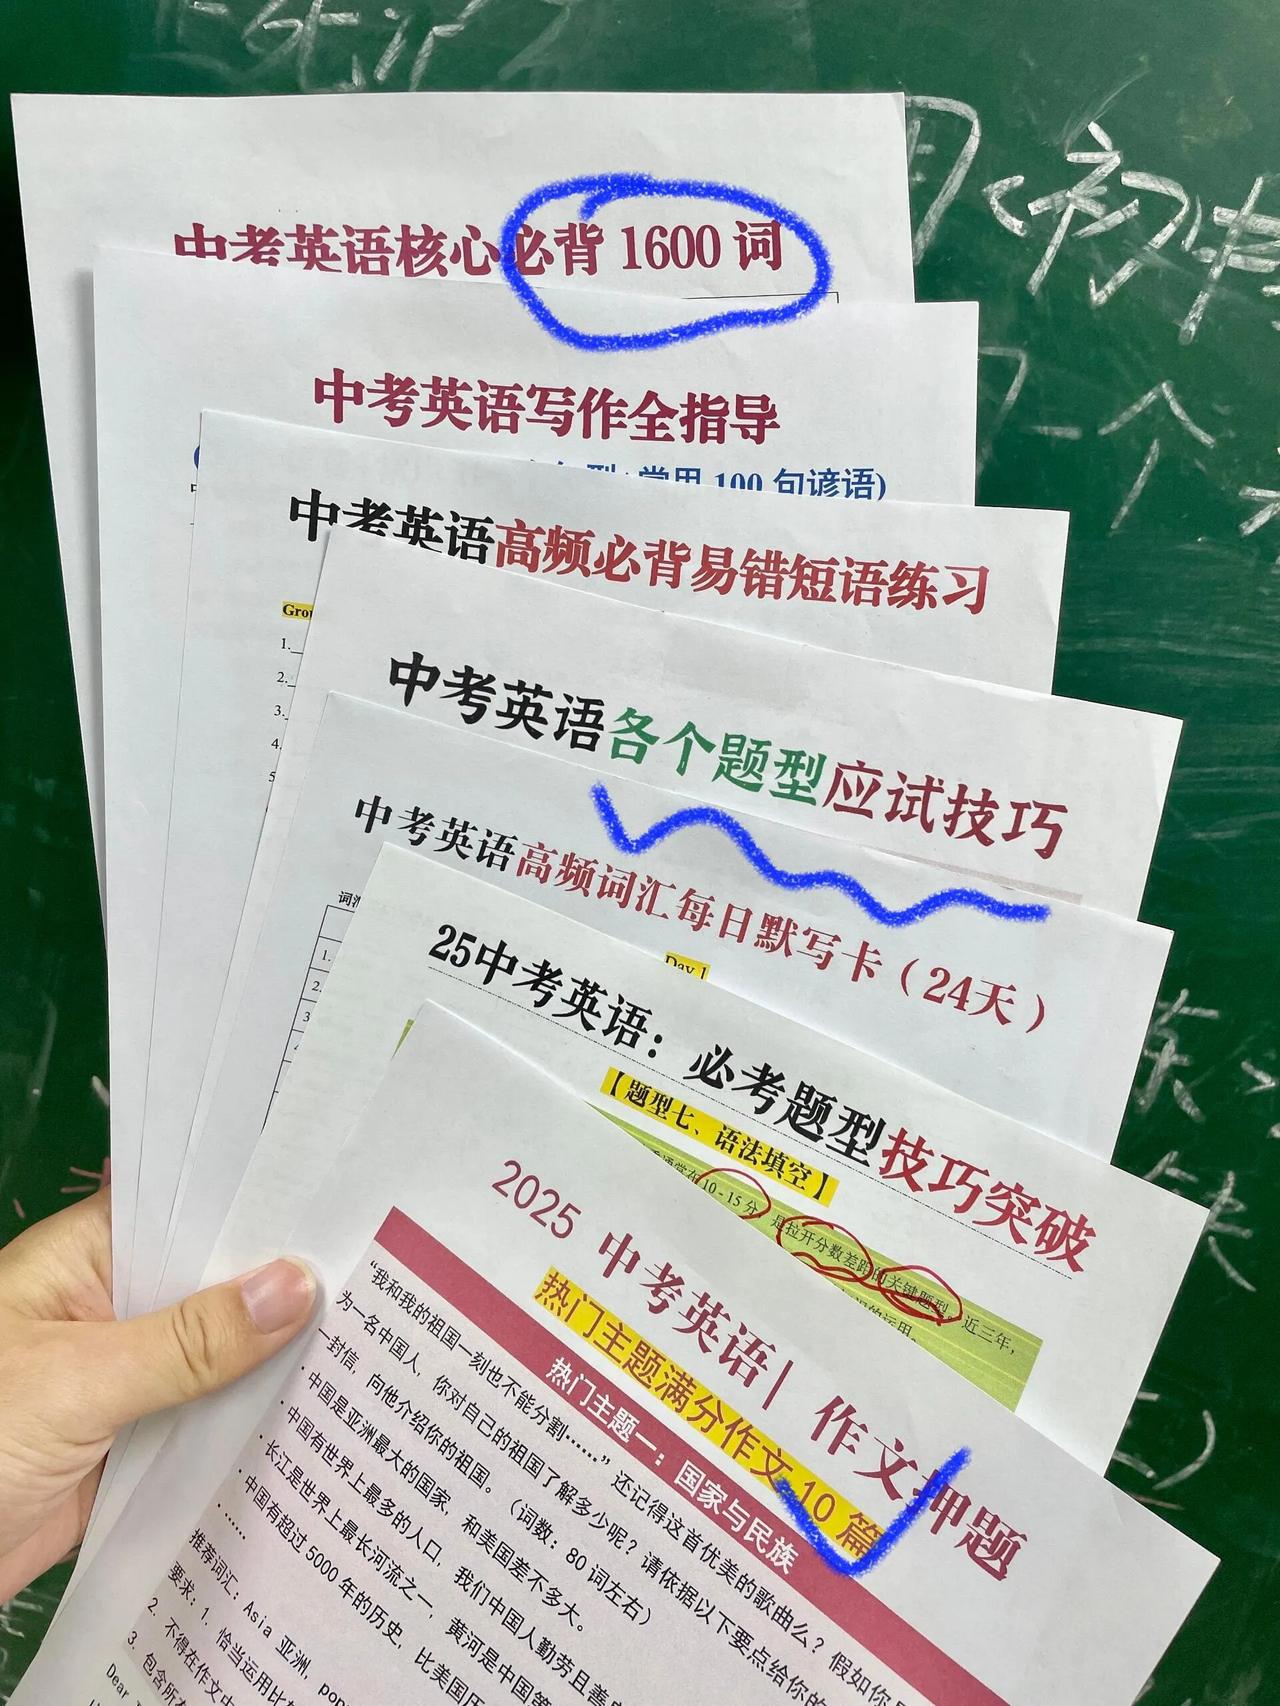 中考英语核心必背 1600 词
中考英语写作全指导
常用 100 句谚语)
中考英语高频必背易错短语练习
1.
2.
3.
4.
5
中考英语各个题型应试技巧
中考英语高频词汇每日默写卡（24天）
Day 1
1.
2.
3
25中考英语：必考题型技巧突破
【题型七、语法填空】
10-15 分，是拉开分数差距的关键题型，近三年，
的运用。
2025 中考英语| 作文押题
热门主题满分作文 10 篇
热门主题一：国家与民族
“我和我的祖国一刻也不能分割……”还记得这首优美的歌曲么？假如你
为一名中国人，你对自己的祖国了解多少呢？请依据以下要点给你的
一封信，向他介绍你的祖国。（词数：80 词左右）
· 中国是亚洲最大的国家，和美国差不多大。
· 中国有世界上最多的人口，我们中国人勤劳且善
· 长江是世界上最长河流之一，黄河是中国第
· 中国有超过 5000 年的历史，比美国历
……
推荐词汇：Asia 亚洲，pop
要求：1. 恰当运用比
2. 不得在作文中
3. 包含所
Dear